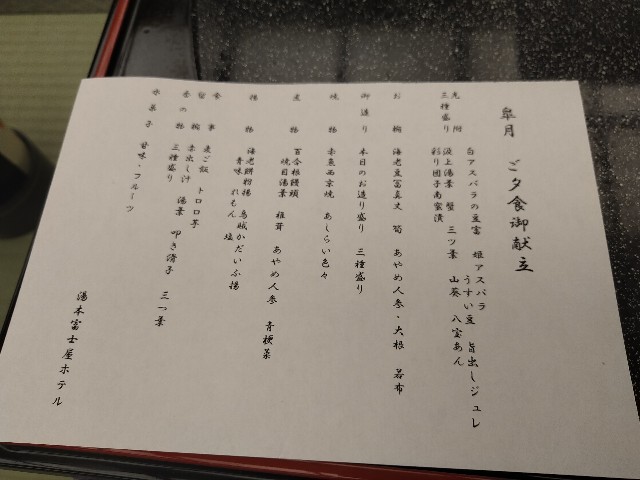 皐月　ご夕食御献立
先　附　白アスパラの豆富　姫アスパラ
うすい豆　旨出しジュレ
三種盛り　汲上湯葉　蟹　三ツ葉　山葵　八宝あん
彩り団子南蛮漬
お　椀　海老豆富真丈　筍　あやめ人参・大根　若布
御造り　本日のお造り盛り　三種盛り
焼　物　赤魚西京焼　あしらい色々
煮　物　百合根饅頭　椎茸　あやめ人参　青梗菜
焼目湯葉
揚　物　海老餅粉揚　烏賊かだいふ揚
青味　れもん　塩
食　事　麦ご飯　トロロ芋
留　椀　赤出し汁　湯葉　叩き滑子　三つ葉
香の物　三種盛り
水菓子　甘味・フルーツ
湯本富士屋ホテル